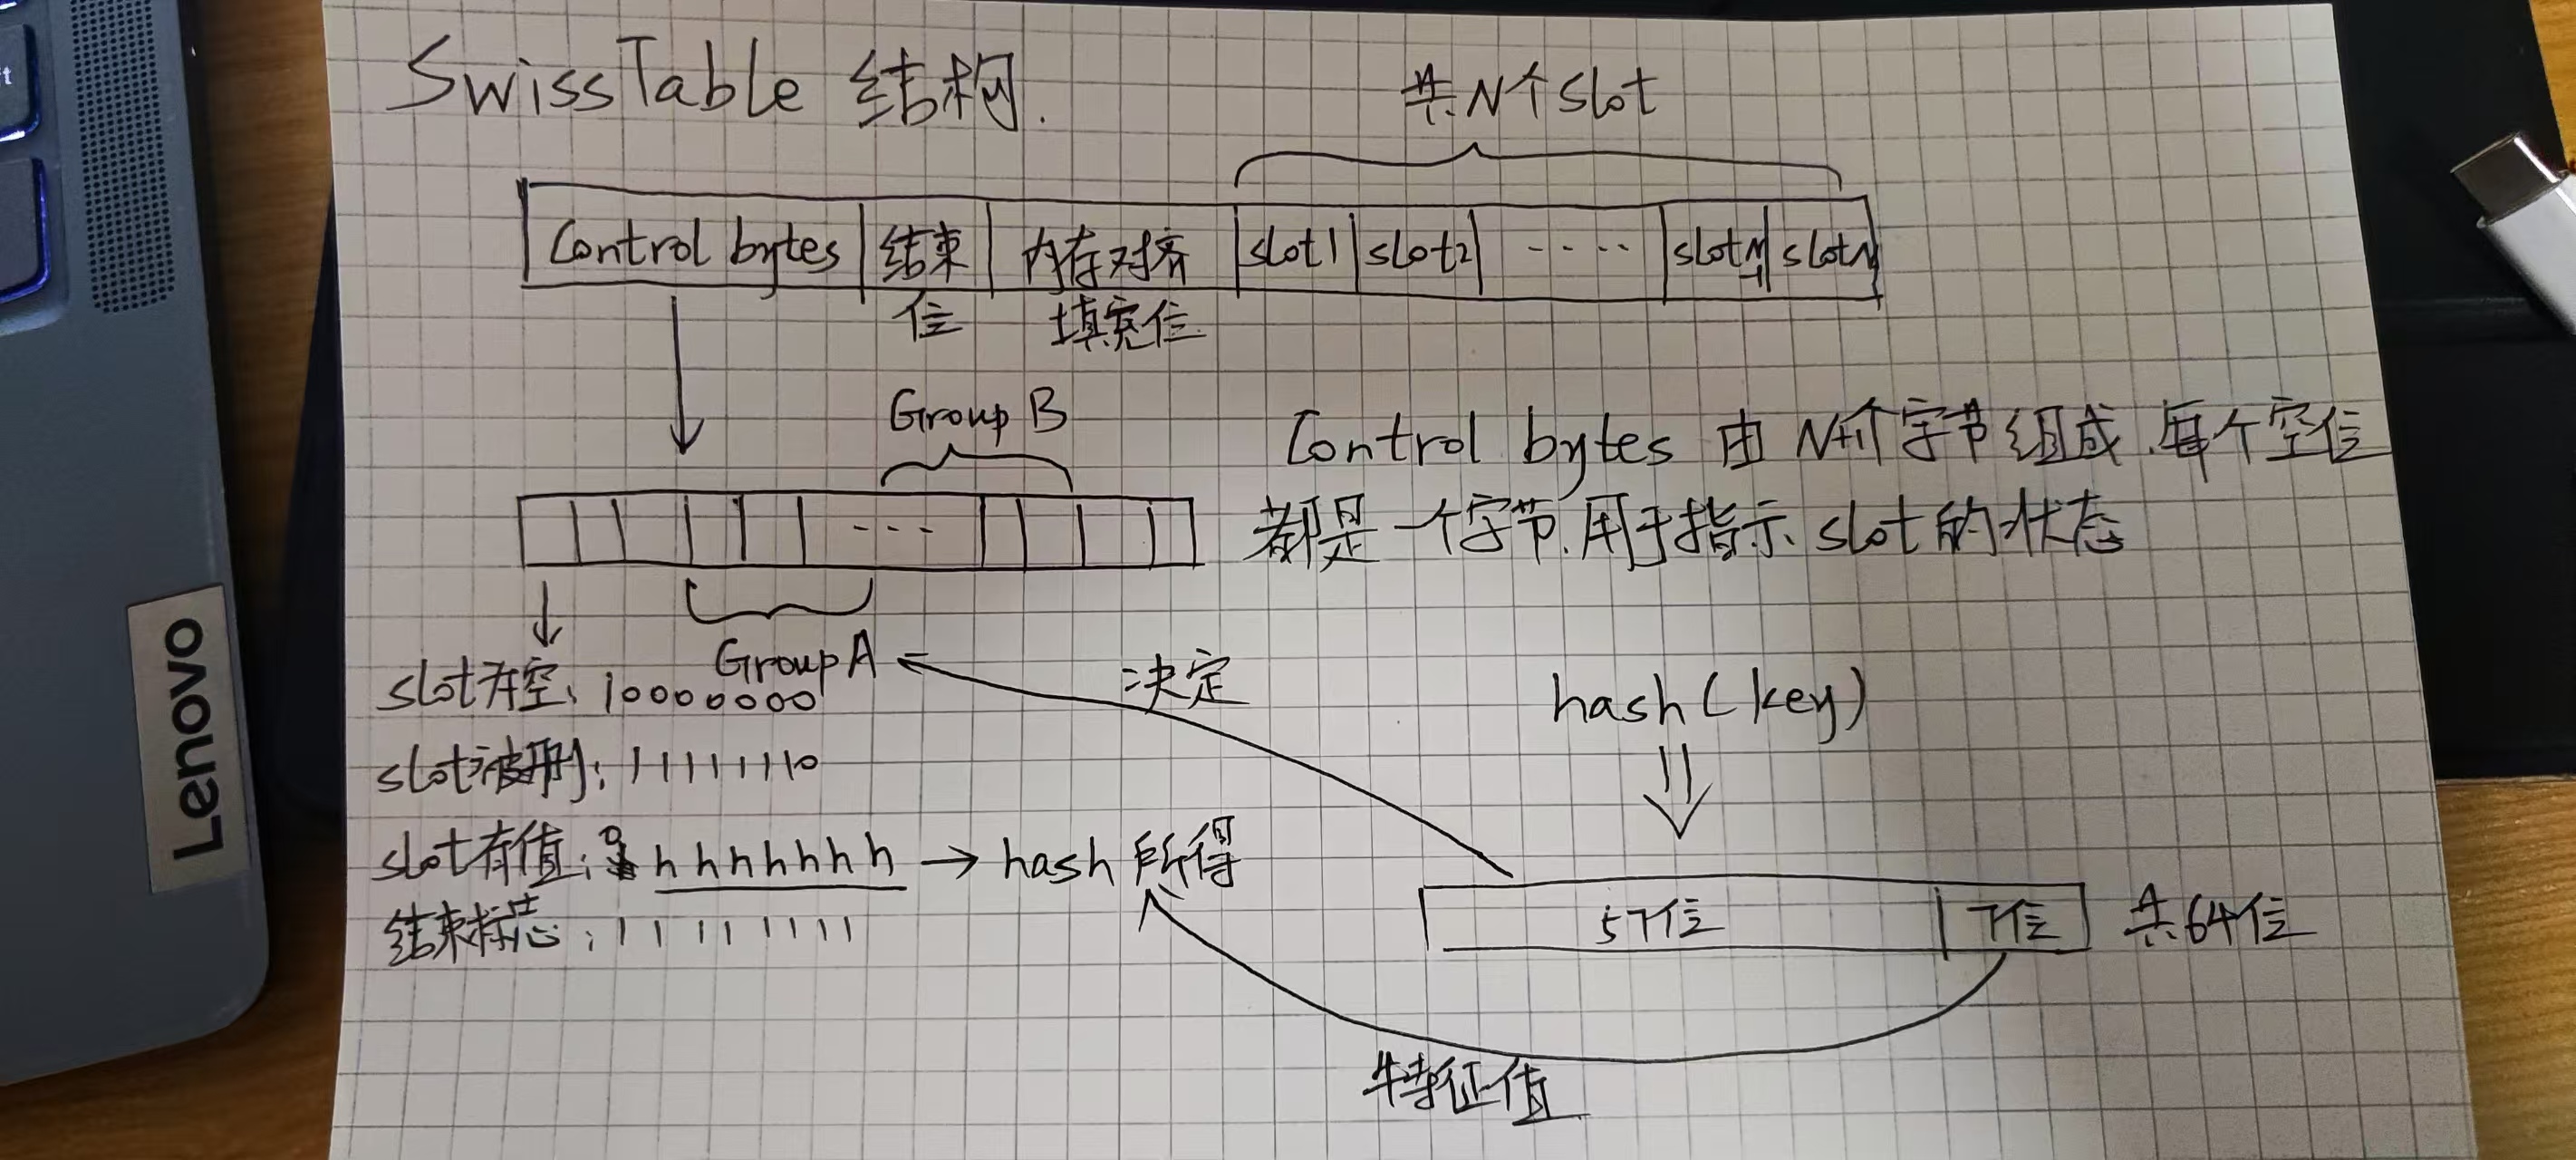 SwissTable 结构.
共N个slot
Control bytes 结束位 内存对齐填充位 slot1 slot2 ---- slotN-1 slotN
Group B
Control bytes 由 N+1个字节组成.每个空位
都是一个字节.用于指示 slot的状态
---
Group A
决定
hash(key)
slot为空: 10000000
slot被删: 11111110
slot有值: 0 hhhhhhh → hash 所得
结束标志: 11111111
57位 7位 共64位
特征值
Lenovo